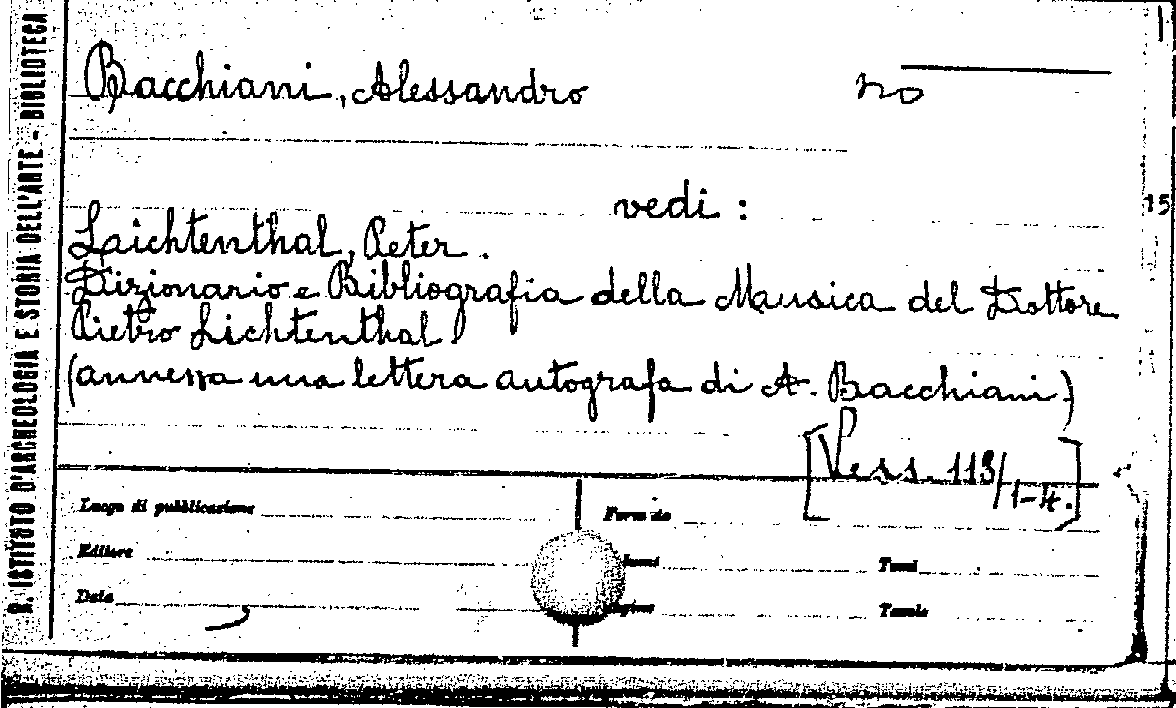 R. ISTITUTO D'ARCHEOLOGIA E STORIA DELL'ARTE - BIBLIOTECA
Bacchiani, Alessandro
no
vedi :
15
Laichtenthal, Peter.
Dizionario e Bibliografia della Musica del Dottore
Pietro Lichtenthal.
(annessa una lettera autografa di A. Bacchiani)
[Vess. 113/1-4.]
Luogo di pubblicazione
Editore
Tomi
Data
Tavole